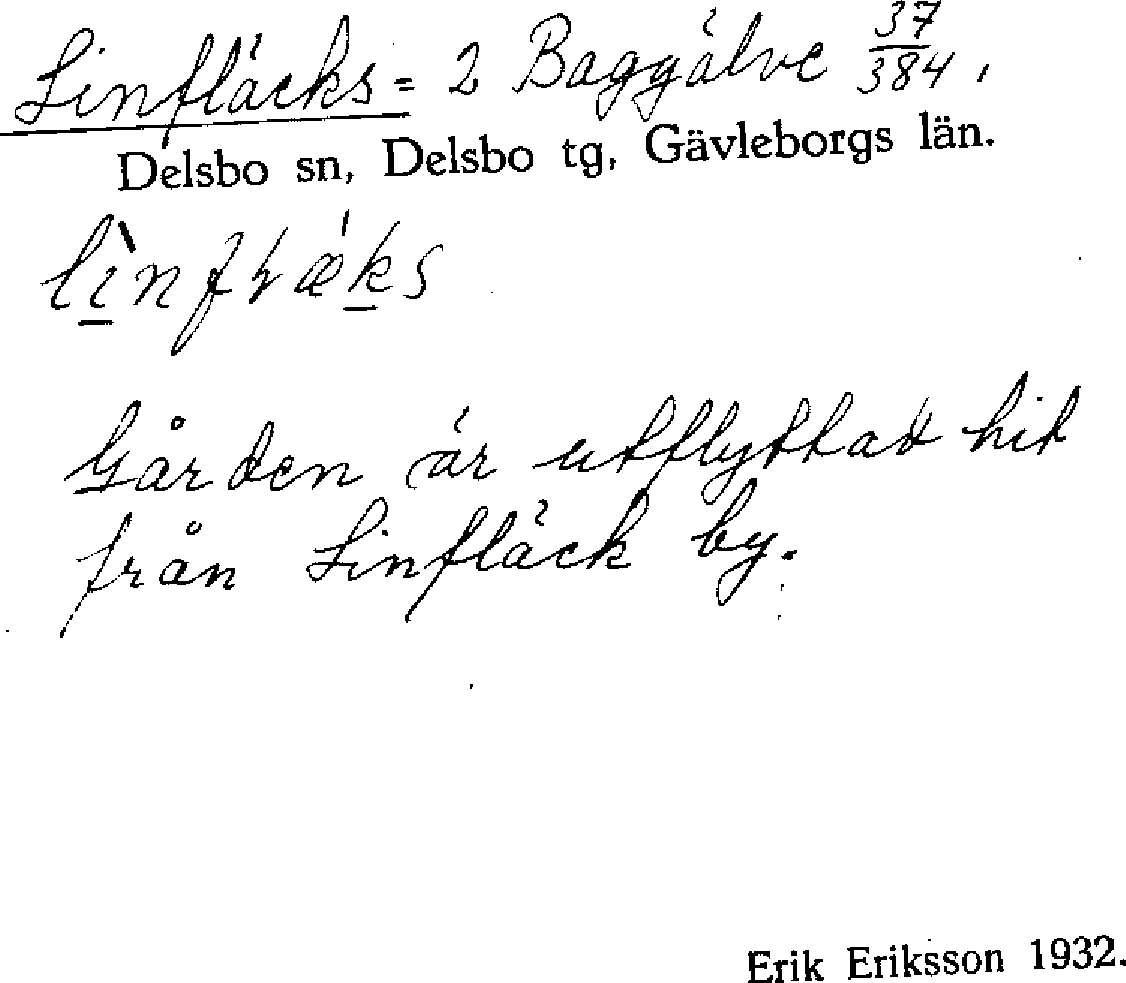 Linfläcks = 2 Baggälve 37/384,
Delsbo sn, Delsbo tg, Gävleborgs län.
Gården är utflyttad hit
från Linfläck by.
Erik Eriksson 1932.